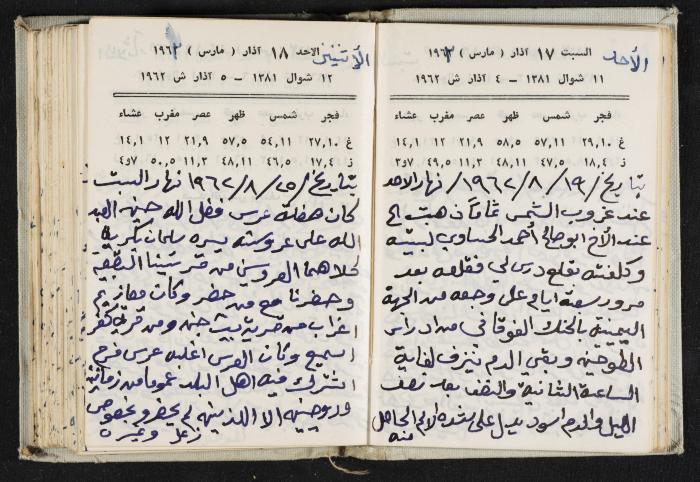 الأحد السبت ١٧ آذار ( مارس ) ١٩٦٢
١١ شوال ١٣٨١ – ٤ آذار ش ١٩٦٢
فجر شمس ظهر عصر مغرب عشاء
غ ٢٩,١٠ ٥٧,١١ ٥٨,٥ ٢١,٩ ١٢ ١٤,١
ز ١٨,٤ ٤٧,٥ ٤٨,١١ ١١,٣ ٤٩,٥ ٧و٣
بتاريخ / ١٩ / ٨ / ١٩٦٢ / نهار الاحد
عند غروب الشمس تماماً ذهبت الى
عند الأخ ابو صالح أحمد الحساوي لبيته
وكلفته بقلع درس لي فقلعه بعد
مرور سبعة ايام على وجعه من الجهة
اليمينة بالحنك الفوقاني من ادراس
الطوحين وبقي الدم ينزف لغاية
الساعة الثانية والنصف بعد نصف
الليل والدم اسود يدل على شدة الألم الحاصل
منه
الأثنين الاحد ١٨ آذار ( مارس ) ١٩٦٢
١٢ شوال ١٣٨١ – ٥ آذار ش ١٩٦٢
فجر شمس ظهر عصر مغرب عشاء
غ ٢٧,١٠ ٥٤,١١ ٥٧,٥ ٢١,٩ ١٢ ١٤,١
ز ١٧,٤ ٤٦,٥ ٤٨,١١ ١١,٣ ٥٠,٥ ٧و٤
بتاريخ / ٢٥ / ٨ / ١٩٦٢ نهار السبت
كان حفلة عرس فضل الله حسين العبد
الله على عروسته يسره سلمان
كلاهما العروسين من قريتنا
وحضرنا مع من حضر وكان معازيم
اغراب من قرية بيت جن ومن قرية كفر
اسميع وكان العرس اغلبه عرس فرح
اشترك فيه اهل البلد عموما من
ودروحيين الا اللذين لم يحضرو بخصوص
زعل وغيره